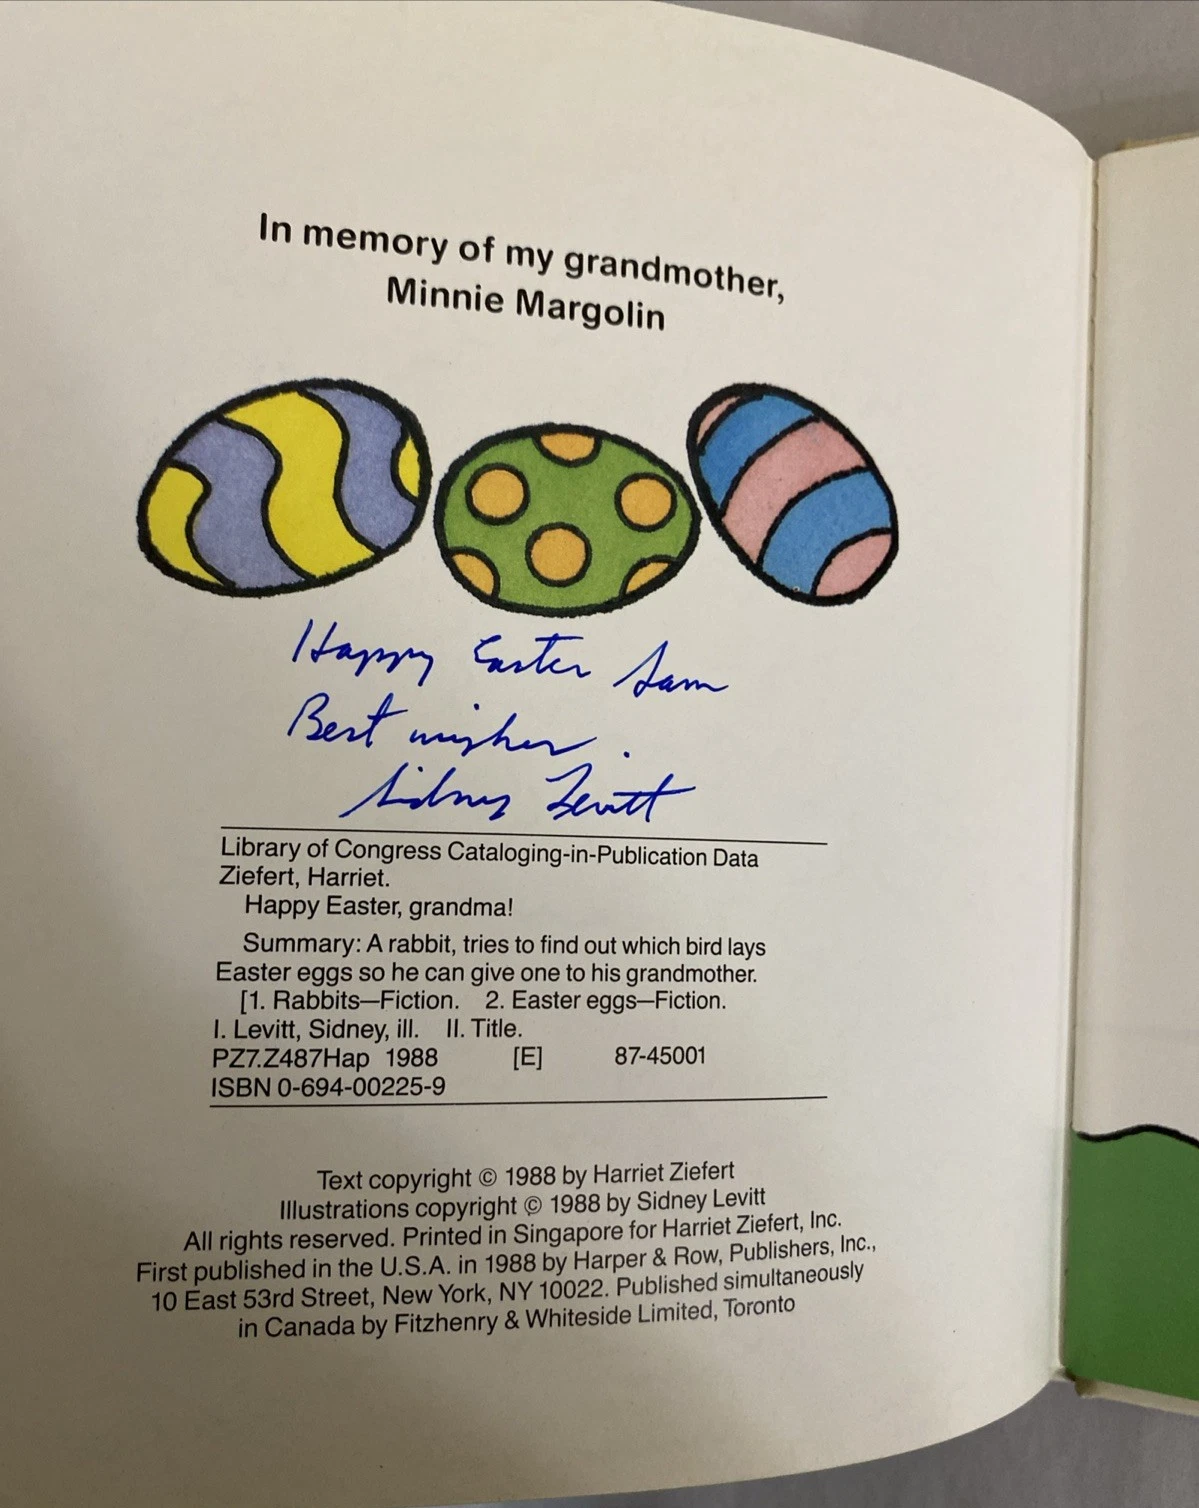 In memory of my grandmother,
Minnie Margolin
Happy Easter Sam
Best wishes.
Sidney Levitt
Library of Congress Cataloging-in-Publication Data
Ziefert, Harriet.
Happy Easter, grandma!
Summary: A rabbit, tries to find out which bird lays
Easter eggs so he can give one to his grandmother.
[1. Rabbits—Fiction. 2. Easter eggs—Fiction.
I. Levitt, Sidney, ill. II. Title.
PZ7.Z487Hap 1988 [E] 87-45001
ISBN 0-694-00225-9
Text copyright © 1988 by Harriet Ziefert
Illustrations copyright © 1988 by Sidney Levitt
All rights reserved. Printed in Singapore for Harriet Ziefert, Inc.
First published in the U.S.A. in 1988 by Harper & Row, Publishers, Inc.,
10 East 53rd Street, New York, NY 10022. Published simultaneously
in Canada by Fitzhenry & Whiteside Limited, Toronto